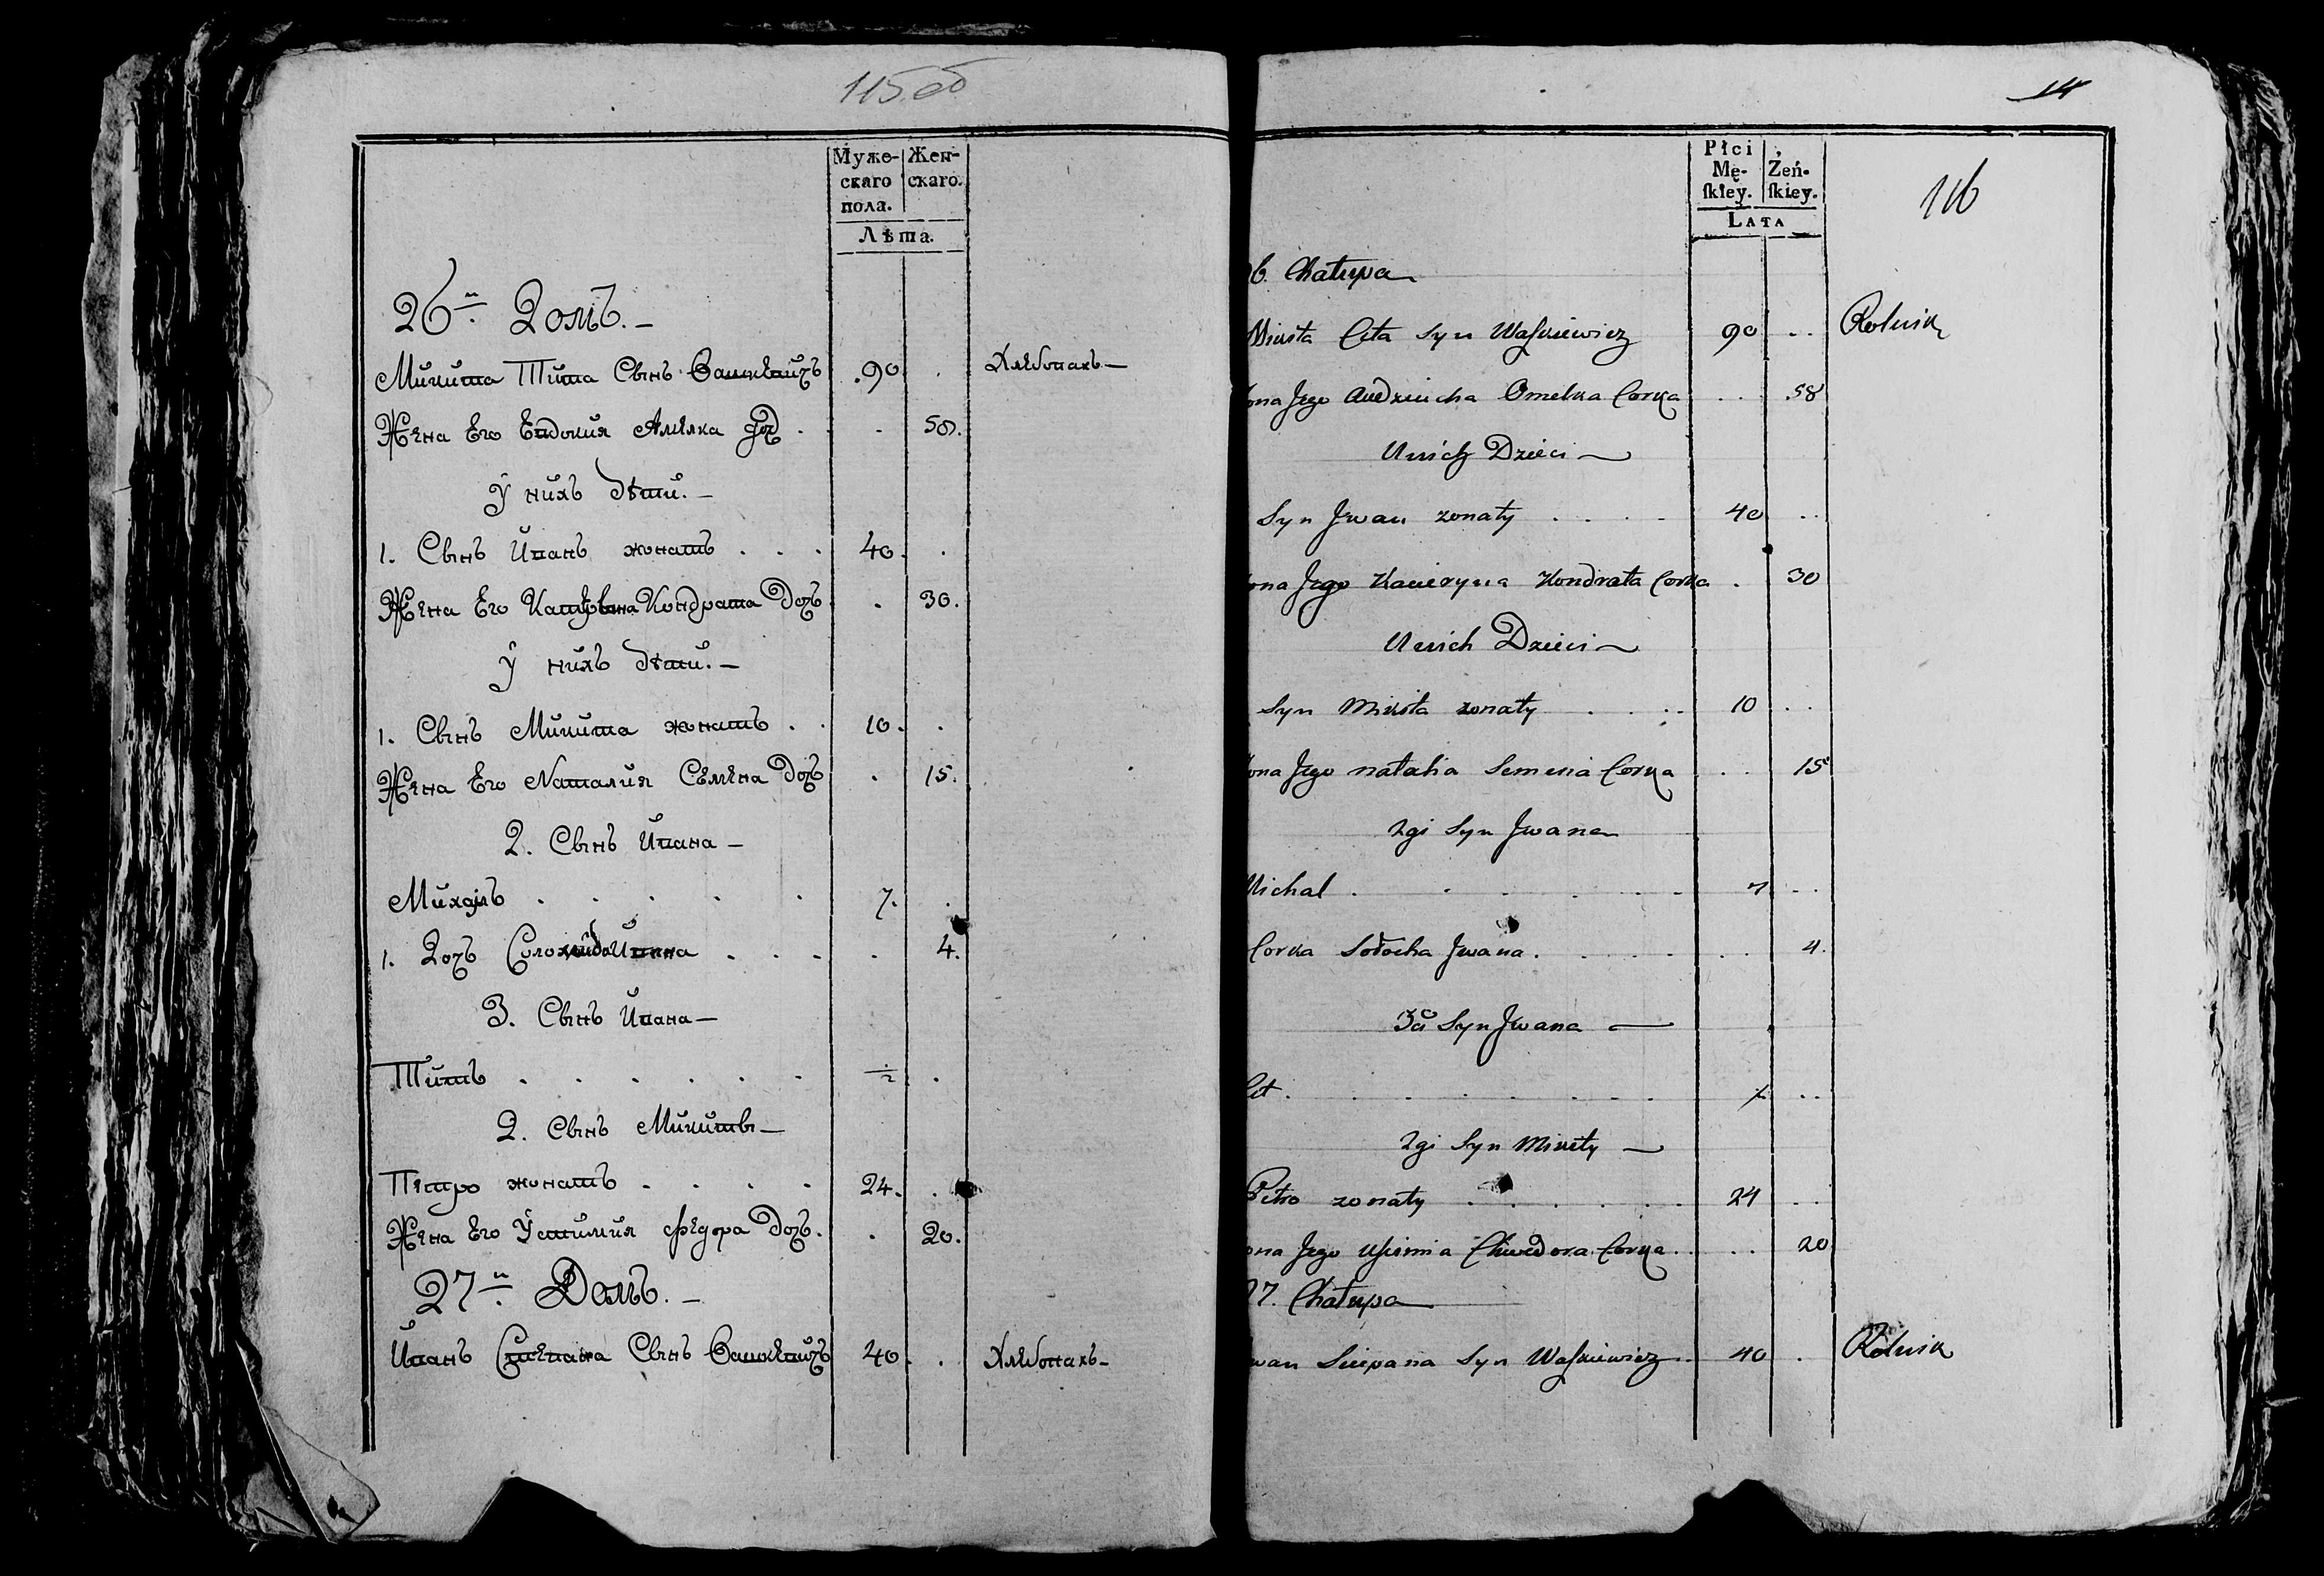 115 об
Муже-
скаго
пола.
Жен-
скаго.
Лѣта.
26й Домъ.
Микита Тита Сынъ Вашкевичъ .90 . Хлебопахъ
Жена Его Евдокия Амелка Доч . . 58.
У нихъ дѣти.
1. Сынъ Иванъ жонатъ . . . 40. .
Жена Его Катерына Кондрата Дочъ . 30.
У нихъ дѣти.
1. Сынъ Микита жонатъ . . 10. .
Жена Его Наталия Семена Дочъ . 15.
2. Сынъ Ивана
Михалъ . . . . . 7. .
1. Дочъ Ивана . . . . 4.
3. Сынъ Ивана
Титъ . . . . . . ½ .
2. Сынъ Микиты
Петро жонатъ . . . . 24. .
Жена Его Устимия Федора Дочъ. . 20.
27й Домъ.
Иванъ Степана Сынъ Вашкевичъ 40 . . Хлебопахъ
14
116
Płci
Mę-
ſkiey.
Żeń-
ſkiey.
LATA
6. Chałupa
Mikita Cita Syn Waſkiewicz 90 .. Rolnik
ona Jego Audziucha Omelka Corka . . .58
U nich Dzieci
Syn Jwan zonaty . . . . 40 ..
ona Jego Kacieryna Kondrata Corka . 30
U nich Dzieci
Syn Mikita zonaty . . . . 10 . .
ona Jego Natalia Semena Corka . . 15
2gi Syn Jwana
Michal . . . . . . . 7 . .
Corka Sołocha Jwana . . . . . . 4.
3ci Syn Jwana
Cit . . . . . . . . ..
2gi Syn Mikity
Petro zonaty . . . . . . 24 . .
ona Jego Uscimia Chwedora Corka . . . 20
27. Chałupa
wan Sciepana Syn Waſkiewicz .. 40 . Rolnik